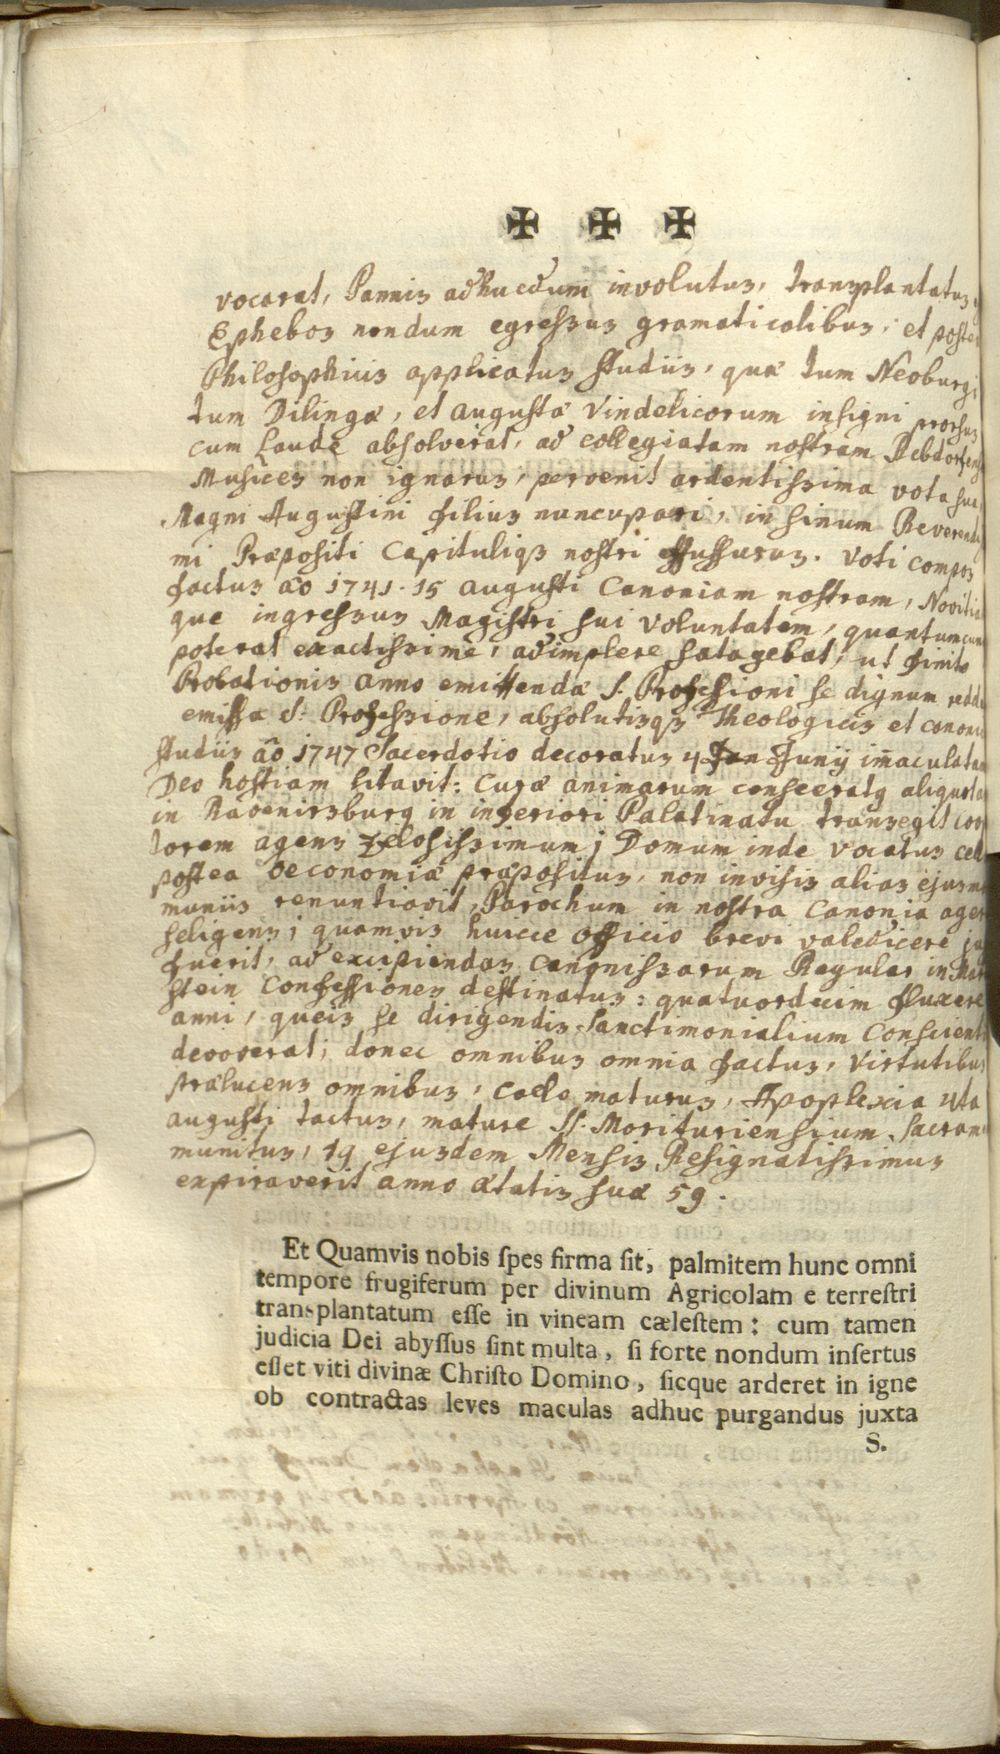 ✠ ✠ ✠
vocarat, Pannis adhucdum involutus, transplantatus,
Ephebos nondum egressus gramaticalibus, et poste
Philosophicis applicatus studiis, quæ tum Neoburgi
tum Dilingæ, et augustæ Vindelicorum insigni prorsus
cum Laude absolverat, ad collegiatam nostram Rebdorfens
Musices non ignarus, pervenit ardentissima vota sua,
Magni Augustini filius nuncupari, in sinum Reverendis
mi Præpositi Capituliqz nostri effusurus. Voti compos
factus aõ 1741. 15 augusti Canoniam nostram, Novitia
que ingressus Magistri sui Voluntatem, quantumcun
poterat exactissime, adimplere satagebat, ut finito
Probationis anno emittendæ S. Professioni se dignum redde
emissa S: Professione, absolutisqz Theologicis et canoni
studiis aõ 1747 Sacerdotio decoratus 4 Jan Junij im̃aculatam
Deo hostiam litavit: Curæ animarum consecratq aliquota
in Ravenirsburg in inferiori Palatinatu transegit coo
torem agens zelosissimum; Domum inde vocatus cell
postea oeconomiæ præpositus, non invisis alias ejusm
muniis renuntiavit, Parochum in nostra Canonia ager
seligens; quamvis huicce officio brevi valedicere ju
fuerit, ad excipiendas canonissarum Regular in Mar
stein Confessiones destinatus: quatuordecim fluxere
anni, queis se dirigendis Sanctimonialium Conscient
devoverat; donec omnibus omnia factus, Virtutibus
prælucens omnibus, cœlo maturus, Apoplexia 4ta
augusti tactus, mature SS. Morituriensium Sacram
munitus, 19 ejusdem Mensis Resignatissimus
expiraverit anno ætatis suæ 59.
Et Quamvis nobis ſpes firma ſit, palmitem hunc omni
tempore frugiferum per divinum Agricolam e terreſtri
transplantatum eſſe in vineam cæleſtem: cum tamen
judicia Dei abyſſus ſint multa, ſi forte nondum inſertus
eſſet viti divinæ Chriſto Domino, ſicque arderet in igne
ob contractas leves maculas adhuc purgandus juxta
S.